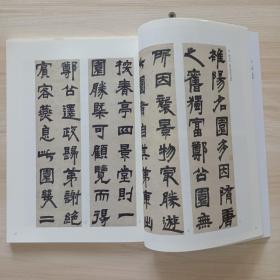 雒陽名園多因隋唐
之舊獨富鄭公園無
所因襲景物冣勝遊
東出
探春亭四景堂則一
園勝槩可顧覽而得
鄭公還政歸第謝絕
賓客燕息此園幾二